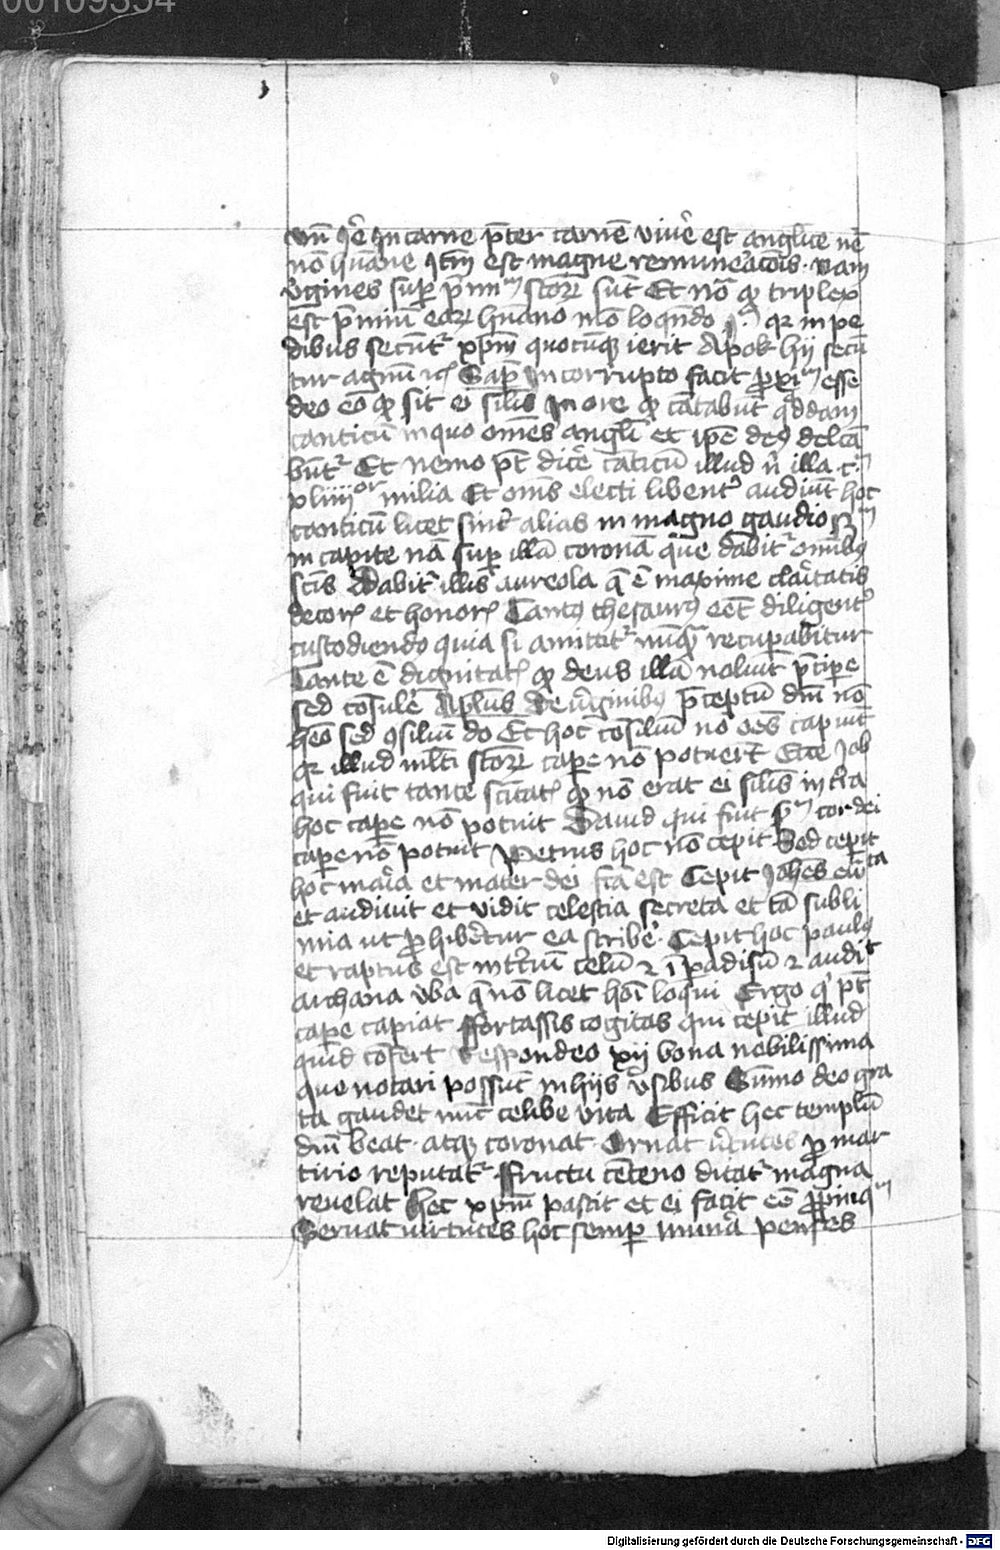 00109354
vn̄ in carne p̄ter carnē viuē est anglice nō
nō hūane est magne remūeracōis nam
v̄gines sup̱ scōꝝ sūt Et nō triplex
est p̄miū eaꝝ hūano mō loqn̄do qꝛ in pe
dibus secūt᷑ xp̄m quocūqꝫ ierit Apok hij secū
tur agnū Sap̄ Incorrupto facit esse
deo eō sit ei sil̄is In ore cātabūt qddam
canticū in quo om̄es angl̄i et ip̄e deꝰ delcā
būt᷑ Et nemo pt̄ dicē cāticū illud n̄ illa c
xliiii or milia Et om̄s electi libent᷑ audiūt hoc
canticū licet sint alias in magno gaudio
in capite nā sup̱ illā coronā que dabit᷑ om̄ibꝰ
sc̄is Dabit᷑ illis aureola q̄ ē maxime claritatis
decoris et honoris Tantꝰ thesaurꝰ eēt diligent᷑
custodiendo quia si amittit᷑ nūqꝫ recup̱abitur
Tante ē dignitatis deus illā noluit p̄cip̱e
sed cōsulē Apl̄us De v̄ginibꝰ p̄ceptū dn̄i nō
heō sed ꝯsiliū do Et hoc cōsiliū nō oēs capiūt
qꝛ illud ml̄ti scōꝝ cap̱e nō potuert Job
qui fuit tante sc̄itatis nō erat ei sil̄is in t̄ra
hoc cap̱e nō potuit Dauid qui fuit cor dei
cap̱e nō potuit Petrus hoc nō cepit Sed cepit
hoc maria et mater dei fc̄a est Cepit Joh̄es ewta
et audiuit et vidit celestia secreta et tā subli
mia ut ꝓhibēetur ea scribē Cepit hoc paulꝰ
et raptus est in t̄ciū celū ⁊ ī padisū ⁊ audit
archana v̄ba q̄ nō licet hōi loqui Ergo q̇ pt̄
cap̱e capiat ffortassis cogitas qui cepit illud
quid cōfert Respondeo xij bona nobilissima
que notari possūt in hijs v̄sibus Sūmo deo gra
ta gaudet nūc celibe vita Efficit hec templū
dn̄i beat atqꝫ coronat Ornat v̄tutes ꝓ mar
tirio reputat᷑ ffructu cēteno ditat᷑ magna
reuelat Hec xp̄m pascit et ei facit eē ꝓpinqm
Seruat virtutes hoc semper penses
Digitalisierung gefördert durch die Deutsche Forschungsgemeinschaft - DFG